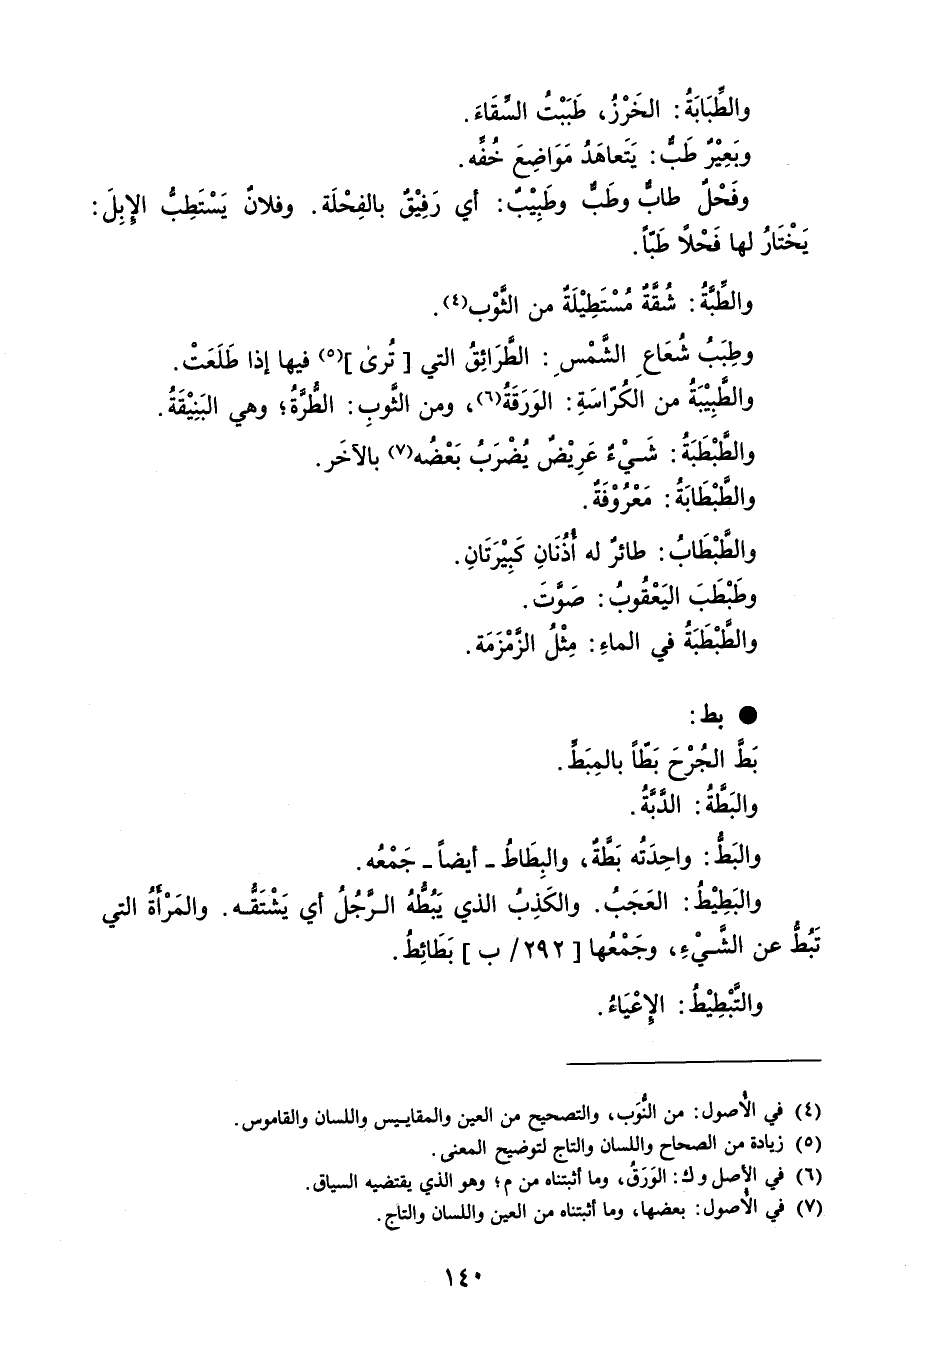 والطِّبَابَةُ: الخَرْزُ، طَبَبْتُ السِّقَاءَ.
وبَعِيْرٌ طَبٌّ: يَتَعاهَدُ مَوَاضِعَ خُفِّه.
وفَحْلٌ طابٌّ وطَبٌّ وطَبِيْبٌ: أي رَفِيْقٌ بالفِحْلَة. وفلانٌ يَسْتَطِبُّ الإِبِلَ:
يَخْتَارُ لها فَحْلاً طَبّاً.
والطِّبَّةُ: شُقَّةٌ مُسْتَطِيْلَةٌ من الثَّوْب(٤).
وطِبَبُ شُعَاعِ الشَّمْسِ: الطَّرَائِقُ التي [ تُرىٰ ](٥) فيها إذا طَلَعَتْ.
والطَّبِيْبَةُ من الكُرّاسَةِ: الوَرَقَةُ(٦)، ومن الثَّوبِ: الطُّرَّةُ؛ وهي البَنِيْقَةُ.
والطَّبْطَبَةُ: شَيْءٌ عَرِيْضٌ يُضْرَبُ بَعْضُه(٧) بالآخَر.
والطَّبْطَابَةُ: مَعْرُوْفَةٌ.
والطَّبْطَابُ: طائرٌ له أُذُنَانِ كَبِيْرَتَانِ.
وطَبْطَبَ اليَعْقُوبُ: صَوَّتَ.
والطَّبْطَبَةُ في الماءِ: مِثْلُ الزَّمْزَمَة.
● بط:
بَطَّ الجُرْحَ بَطّاً بالمِبَطِّ.
والبَطَّةُ: الدَّبَّةُ.
والبَطُّ: واحِدَتُه بَطَّةٌ، والبِطَاطُ ـ أيضاً ـ جَمْعُه.
والبَطِيْطُ: العَجَبُ. والكَذِبُ الذي يَبُطُّهُ الرَّجُلُ أي يَشْتَقُّه. والمَرْأَةُ التي
تَبُطُّ عن الشَّيْءِ، وجَمْعُها [ ٢٩٢/ ب ] بَطَائِطُ.
والتَّبْطِيْطُ: الإِعْيَاءُ.
(٤) في الأُصول: من النُّوَب، والتصحيح من العين والمقاييس واللسان والقاموس.
(٥) زيادة من الصحاح واللسان والتاج لتوضيح المعنى.
(٦) في الأصل و ك: الوَرَقُ، وما أثبتناه من م؛ وهو الذي يقتضيه السياق.
(٧) في الأُصول: بعضها، وما أثبتناه من العين واللسان والتاج.
١٤٠